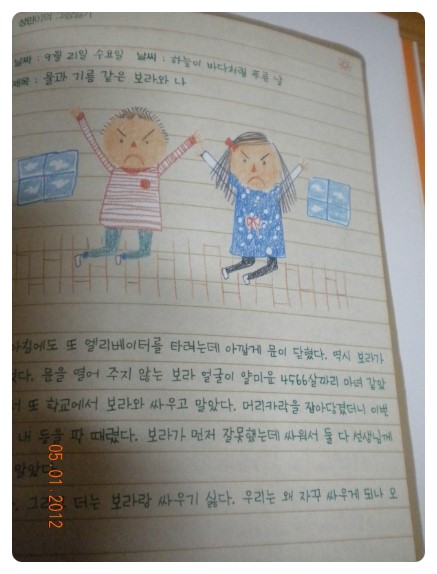 상민이의 그림일기
날짜 : 9월 21일 수요일 날씨 : 하늘이 바다처럼 푸른 날
제목 : 물과 기름 같은 보라와 나
아침에도 또 엘리베이터를 타려는데 아깝게 문이 닫혔다. 역시 보라가
다. 문을 열어 주지 않는 보라 얼굴이 얄미운 4566살짜리 마녀 같았
또 학교에서 보라와 싸우고 말았다. 머리카락을 잡아당겼더니 이번
내 등을 팍 때렸다. 보라가 먼저 잘못했는데 싸워서 둘 다 선생님께
말았다.
더는 보라랑 싸우기 싫다. 우리는 왜 자꾸 싸우게 되나 모
05.01.2012